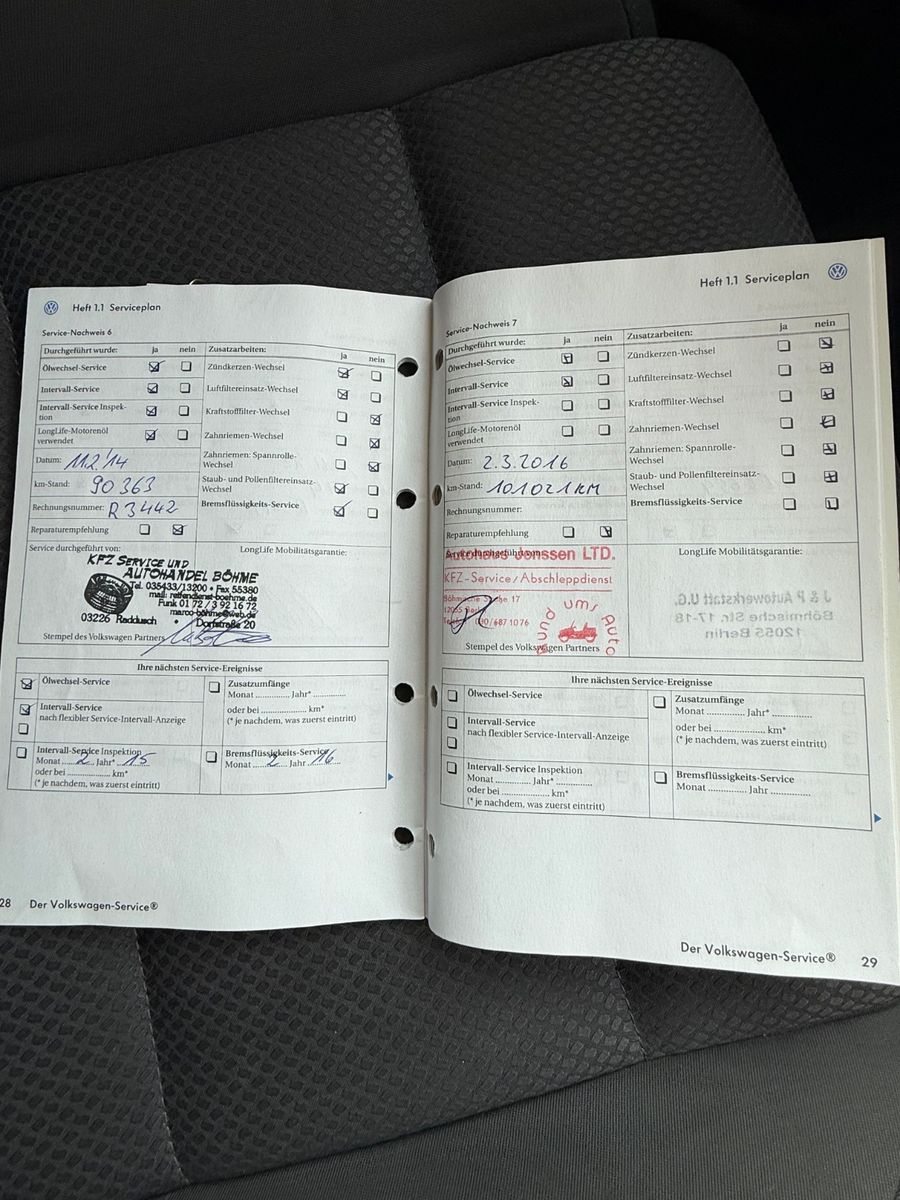 Heft 1.1 Serviceplan
Service-Nachweis 6
Durchgeführt wurde: ja nein Zusatzarbeiten: ja nein
Ölwechsel-Service Zündkerzen-Wechsel
Intervall-Service Luftfiltereinsatz-Wechsel
Intervall-Service Inspek-
tion
Kraftstofffilter-Wechsel
LongLife-Motorenöl
verwendet
Zahnriemen-Wechsel
Datum: 11.2.'14
Zahnriemen: Spannrolle-
Wechsel
km-Stand: 90 363
Staub- und Pollenfiltereinsatz-
Wechsel
Rechnungsnummer: R 3442
Bremsflüssigkeits-Service
Reparaturempfehlung
Service durchgeführt von: LongLife Mobilitätsgarantie:
KFZ SERVICE UND
AUTOHANDEL BÖHME
Tel. 035433/13200 • Fax 55380
mail: reifendienst-boehme.de
Funk 01 72 / 3 92 16 72
marco-böhme@web.de
03226 Raddusch • Dorfstraße 20
Stempel des Volkswagen Partners
Ihre nächsten Service-Ereignisse
Ölwechsel-Service
Zusatzumfänge
Monat .............. Jahr* ..............
oder bei ........................ km*
(* je nachdem, was zuerst eintritt)
Intervall-Service
nach flexibler Service-Intervall-Anzeige
Intervall-Service Inspektion
Monat 2 Jahr* 15
oder bei ........................ km*
(* je nachdem, was zuerst eintritt)
Bremsflüssigkeits-Service
Monat 2 Jahr 16
28 Der Volkswagen-Service®
Heft 1.1 Serviceplan
Service-Nachweis 7
Durchgeführt wurde: ja nein Zusatzarbeiten: ja nein
Ölwechsel-Service Zündkerzen-Wechsel
Intervall-Service Luftfiltereinsatz-Wechsel
Intervall-Service Inspek-
tion
Kraftstofffilter-Wechsel
LongLife-Motorenöl
verwendet
Zahnriemen-Wechsel
Datum: 2.3.2016
Zahnriemen: Spannrolle-
Wechsel
km-Stand: 101021 KM
Staub- und Pollenfiltereinsatz-
Wechsel
Rechnungsnummer:
Bremsflüssigkeits-Service
Reparaturempfehlung
Service durchgeführt von: LongLife Mobilitätsgarantie:
Autohaus Jonssen LTD.
KFZ-Service/Abschleppdienst
Böhmische Straße 17
12055 Berlin
030/687 10 76
Rund ums Auto
J & P Autowerkstatt U.G.
Böhmische Str. 17-18
12055 Berlin
Stempel des Volkswagen Partners
Ihre nächsten Service-Ereignisse
Ölwechsel-Service
Zusatzumfänge
Monat .............. Jahr* ..............
oder bei ........................ km*
(* je nachdem, was zuerst eintritt)
Intervall-Service
nach flexibler Service-Intervall-Anzeige
Intervall-Service Inspektion
Monat .............. Jahr* ..............
oder bei ........................ km*
(* je nachdem, was zuerst eintritt)
Bremsflüssigkeits-Service
Monat .............. Jahr ..............
Der Volkswagen-Service® 29